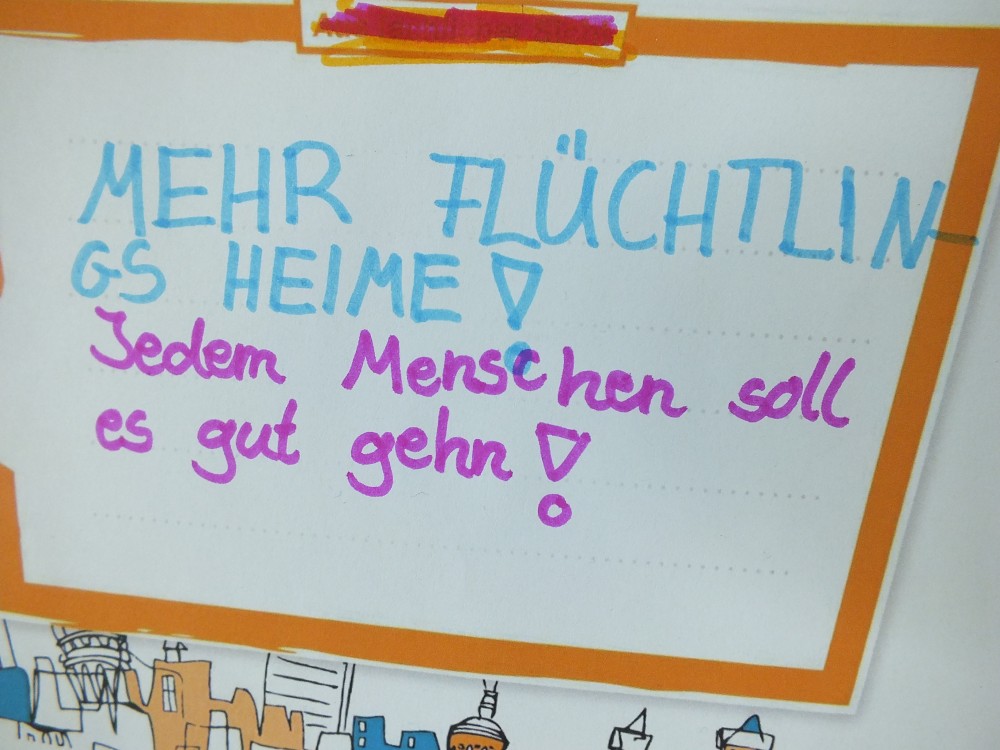 MEHR FLÜCHTLIN-
GS HEIME!
Jedem Menschen soll
es gut gehn!